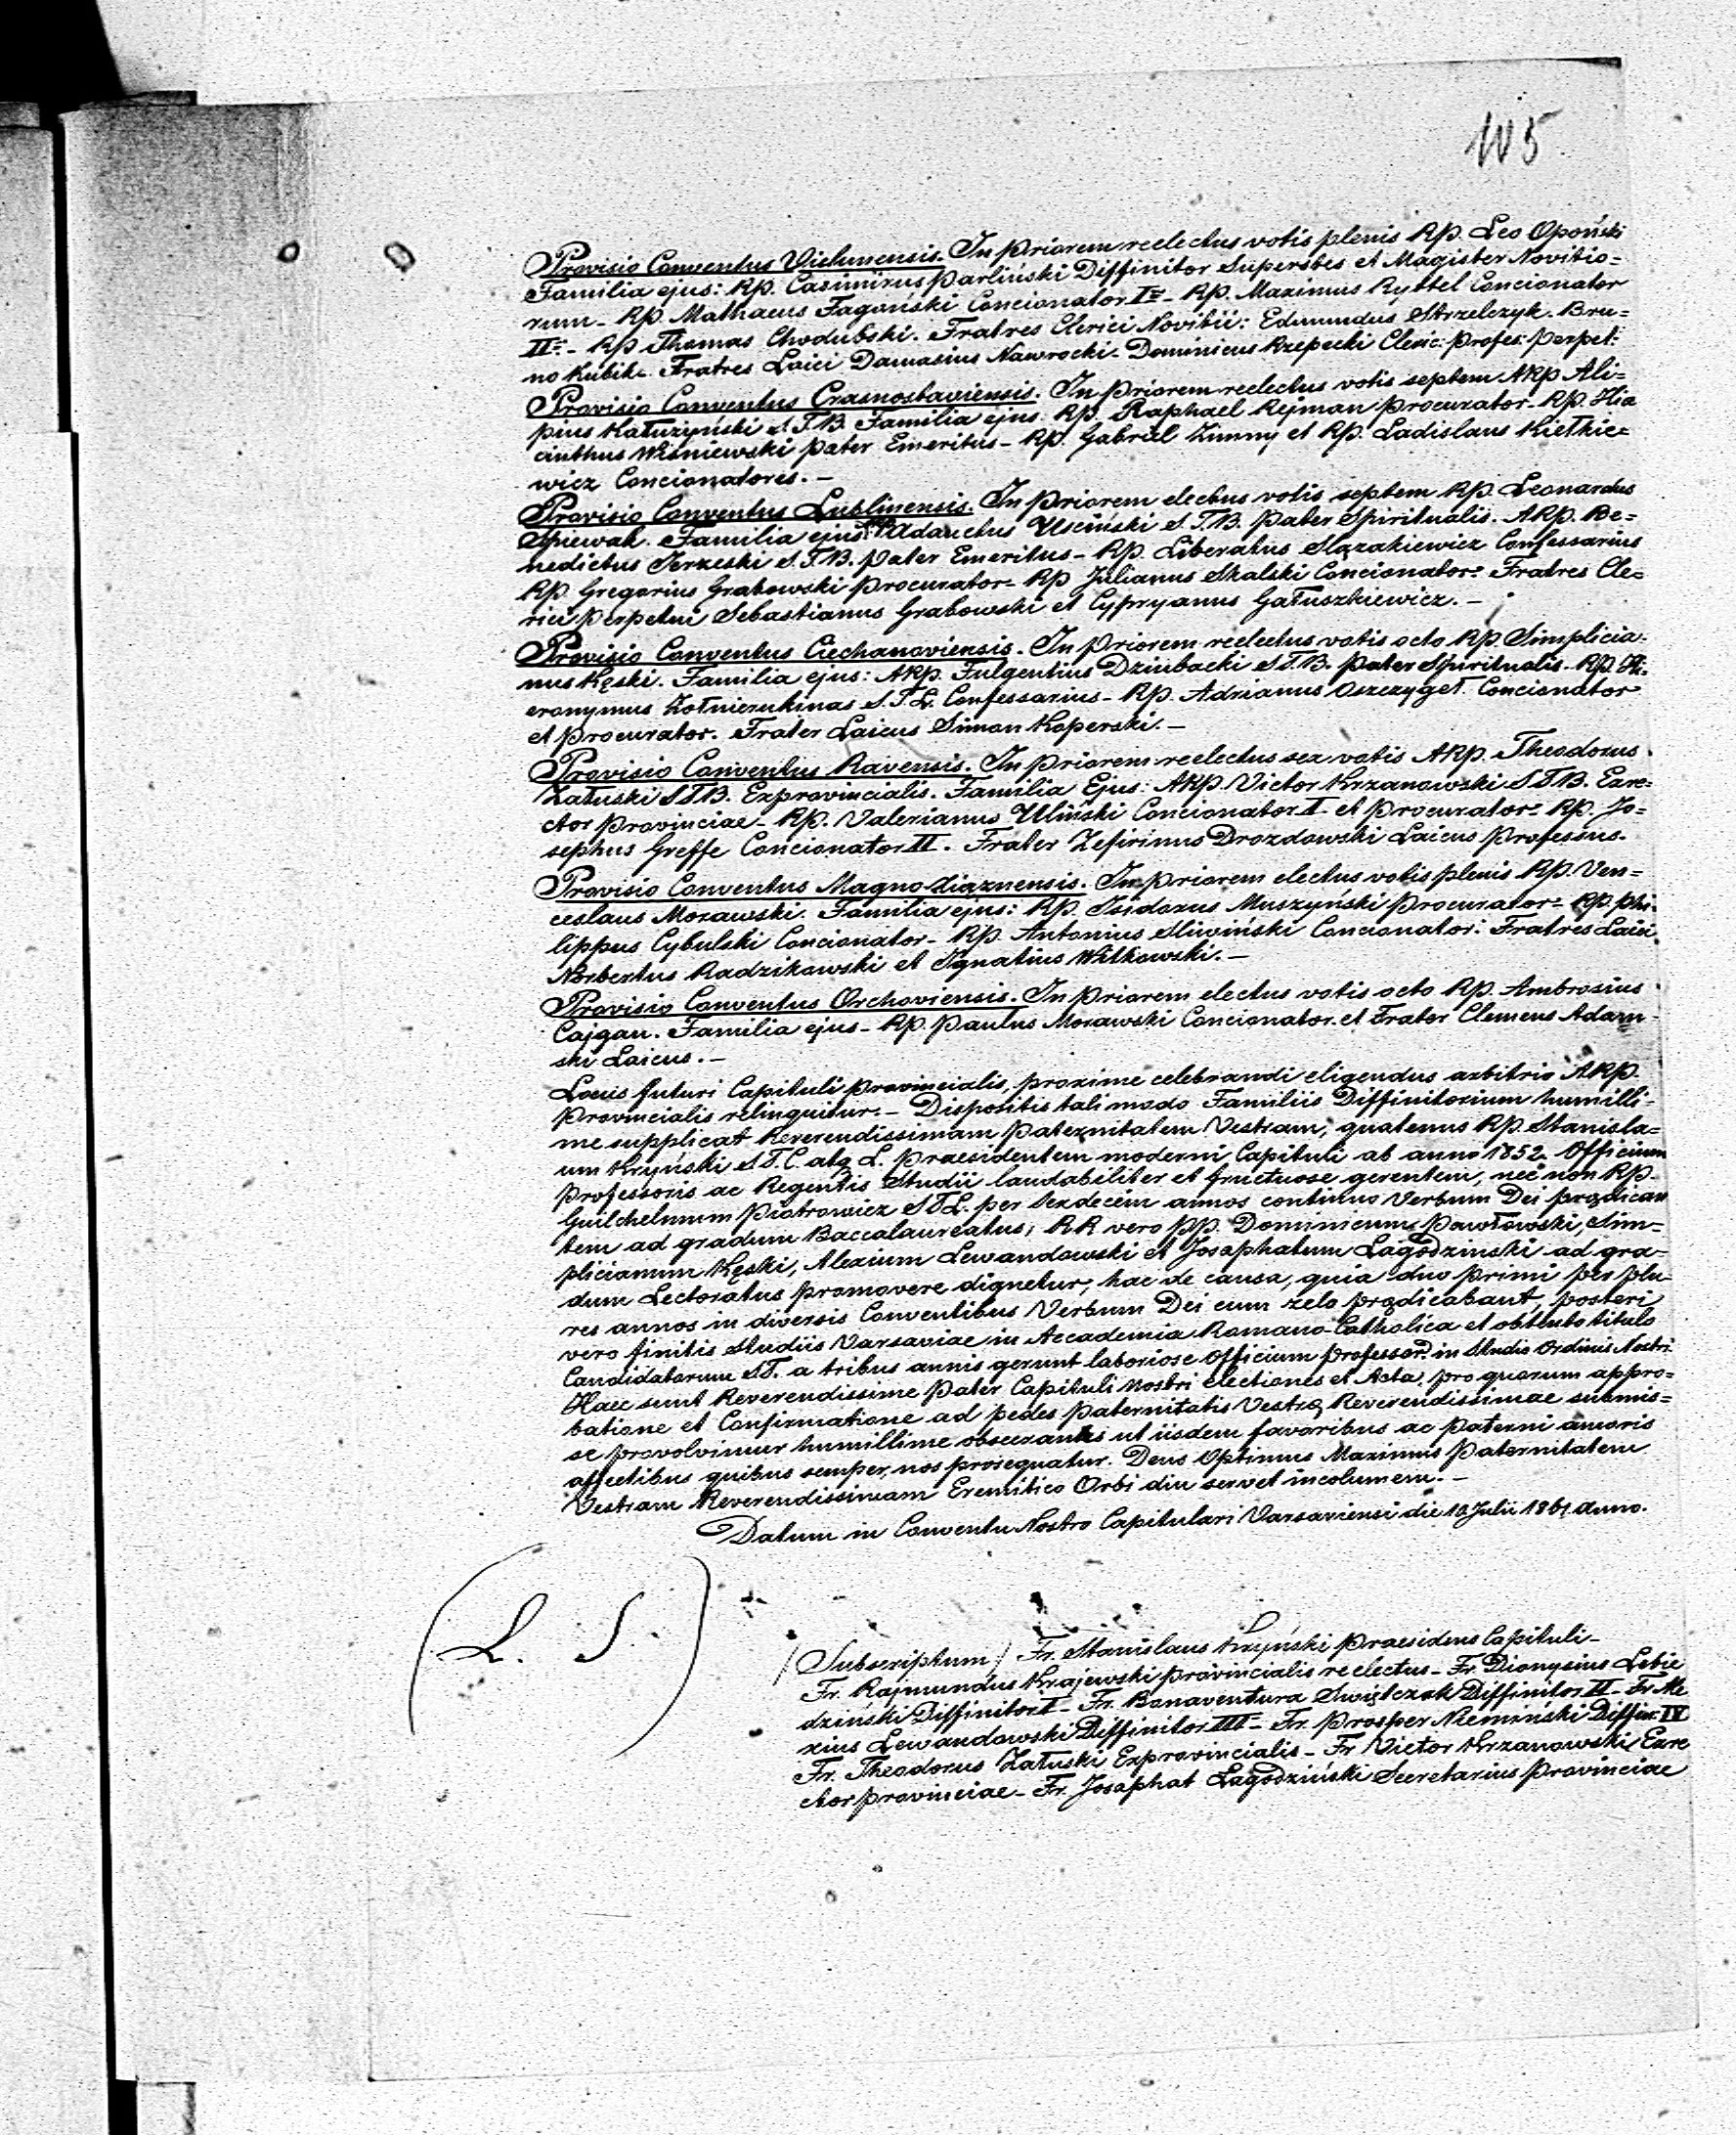 105
Provisio Conventus Vielunensis. In Priorem reelectus votis plenis Rp. Leo Opoński
Familia ejus: Rp. Casimirus Parliński Diffinitor Superstes et Magister Novitio=
rum – Rp Mathaeus Fagoński Concionator Ius – Rp. Maximus Rystel Concionator
IIus – Rp Thomas Chodubski. Fratres Clerici Novitii: Edmundus Strzelczyk. Bru=
no Kubik. Fratres Laici Damasius Nawrocki. Dominicus Rzepecki Cleric: Profes: Perpet:
Provisio Conventus Crasnostaviensis. In Priorem reelectus votis septem ARp Ali=
pius Kałuzyński S.T.B. Familia ejus: Rp. Raphael Rejman Procurator – Rp. Hia
cinthus Wiśniewski Pater Emeritus – Rp. Gabriel Zimny et Rp. Ladislaus Kiełkie=
wicz Concionatores. –
Provisio Conventus Lublinensis. In Priorem electus votis septem Rp. Leonardus
Spiewak. Familia ejus: Adauctus Usciński S.T.B. Pater Spiritualis. ARp. Be=
nedictus Jerzeski S.T.B. Pater Emeritus – Rp. Liberatus Slązakiewicz Confessarius
Rp. Gregorius Grabowski Procurator – Rp Julianus Skalski Concionator – Fratres Cle=
rici Perpetui Sebastianus Grabowski et Cypryanus Gałuszkiewicz. –
Provisio Conventus Ciechanoviensis. In Priorem reelectus votis octo Rp. Simplicia-
nus Kęski. Familia ejus: ARp. Fulgentius Dziubacki S.T.B. Pater Spiritualis. Rp. Hi-
eronymus Żołnierukinas S.T.L. Confessarius – Rp. Adrianus Oszczygeł. Concionator
et Procurator. Frater Laicus Simon Koperski. –
Provisio Conventus Ravensis. In Priorem reelectus sex votis ARp. Theodorus
Załuski STB. Exprovincialis. Familia Ejus: ARp. Victor Krzanowski STB. Exre-
ctor Provinciae – Rp. Valerianus Uliński Concionator I et Procurator – Rp. Jo=
sephus Greffe Concionator II. Frater Zefirinus Drozdowski Laicus Professus.
Provisio Conventus Magno Ziąznensis. In Priorem electus votis plenis Rp. Ven=
ceslaus Morawski. Familia ejus: Rp. Isidorus Muszyński Procurator – Rp. Phi-
lippus Cybulski Concionator – Rp. Antonius Sliwiński Concionator. Fratres Laici
Norbertus Radzikowski et Ignatius Witkowski. –
Provisio Conventus Orchoviensis. In Priorem electus votis octo Rp. Ambrosius
Cajgan. Familia ejus – Rp. Paulus Morawski Concionator et Frater Clemens Adam-
ski Laicus. –
Locus futuri Capituli Provincialis, proxime celebrandi eligendus arbitrio ARp.
Provincialis relinquitur. – Dispositis tali modo Familiis Diffinitorium humilli-
me supplicat Reverendissimam Paternitatem Vestram, quatenus Rp. Stanisla=
um Kryński S.T.C. atq L. Praesidentem moderni Capituli ab anno 1852 Officium
Professoris ac Regentis Studii laudabiliter et fructuose gerentem, nec non Rp.
Guilhelmum Piotrowicz STL. per sexdecim annos continuo Verbum Dei prędican
tem ad gradum Baccalaureatus; RR vero PP. Dominicum Pawłowski, Sim-
plicianum Kęski, Alexium Lewandowski et Josaphatum Łagodzinski ad gra-
dum Lectoratus promovere dignetur, hac de causa, quia duo primi per plu-
res annos in diversis Conventibus Verbum Dei cum zelo prędicabant, posteri
vero finitis Studiis Varsaviae in Accademia Romano-Catholica et obtento titulo
Candidatorum S.T. a tribus annis gerunt laboriose Officium Professor. in Studio Ordinis Nostri.
Haec sunt Reverendissime Pater Capituli Nostri electiones et Acta, pro quorum appro=
batione et Confirmatione ad pedes Paternitatis Vestrę Reverendissimae submis=
se provolvimur humillime obsecrantes ut iisdem favoribus ac paterni amoris
affectibus quibus semper, nos prosequatur. Deus Optimus Maximus Paternitatem
Vestram Reverendissimam Eremitico Orbi diu servet incolumem. –
Datum in Conventu Nostro Capitulari Varsaviensi die 10 Julii 1861 anno.
(L. S.)
/Subscriptum/ Fr. Stanislaus Kryński Praesidens Capituli –
Fr. Rajmundus Krajewski Provincialis reelectus – Fr. Dionysius Lebie
dzinski Diffinitor I – Fr. Bonaventura Swiętczak Diffinitor II – Fr. Ale
xius Lewandowski Diffinitor III – Fr. Prosper Niemiński Diffin: IV
Fr. Theodorus Załuski Exprovincialis – Fr Victor Krzanowski Exre
ctor Provinciae – Fr. Josaphat Łagodziński Secretarius Provinciae